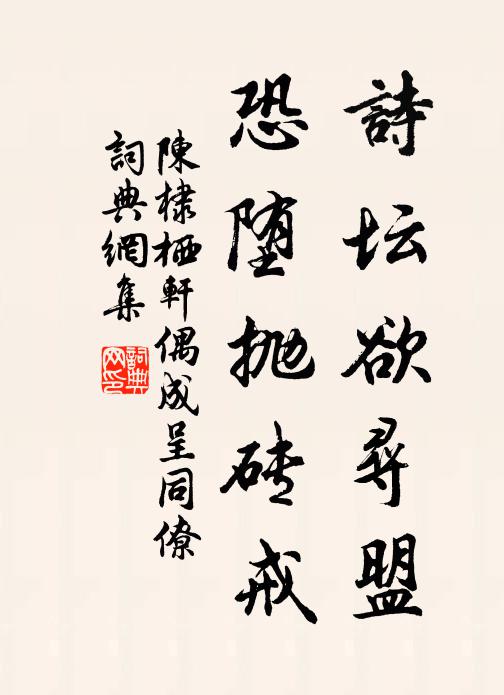 詩坛欲尋盟
恐堕抛砖戒
陳棣栖軒偶成呈同僚
詞典網集
詞典网印